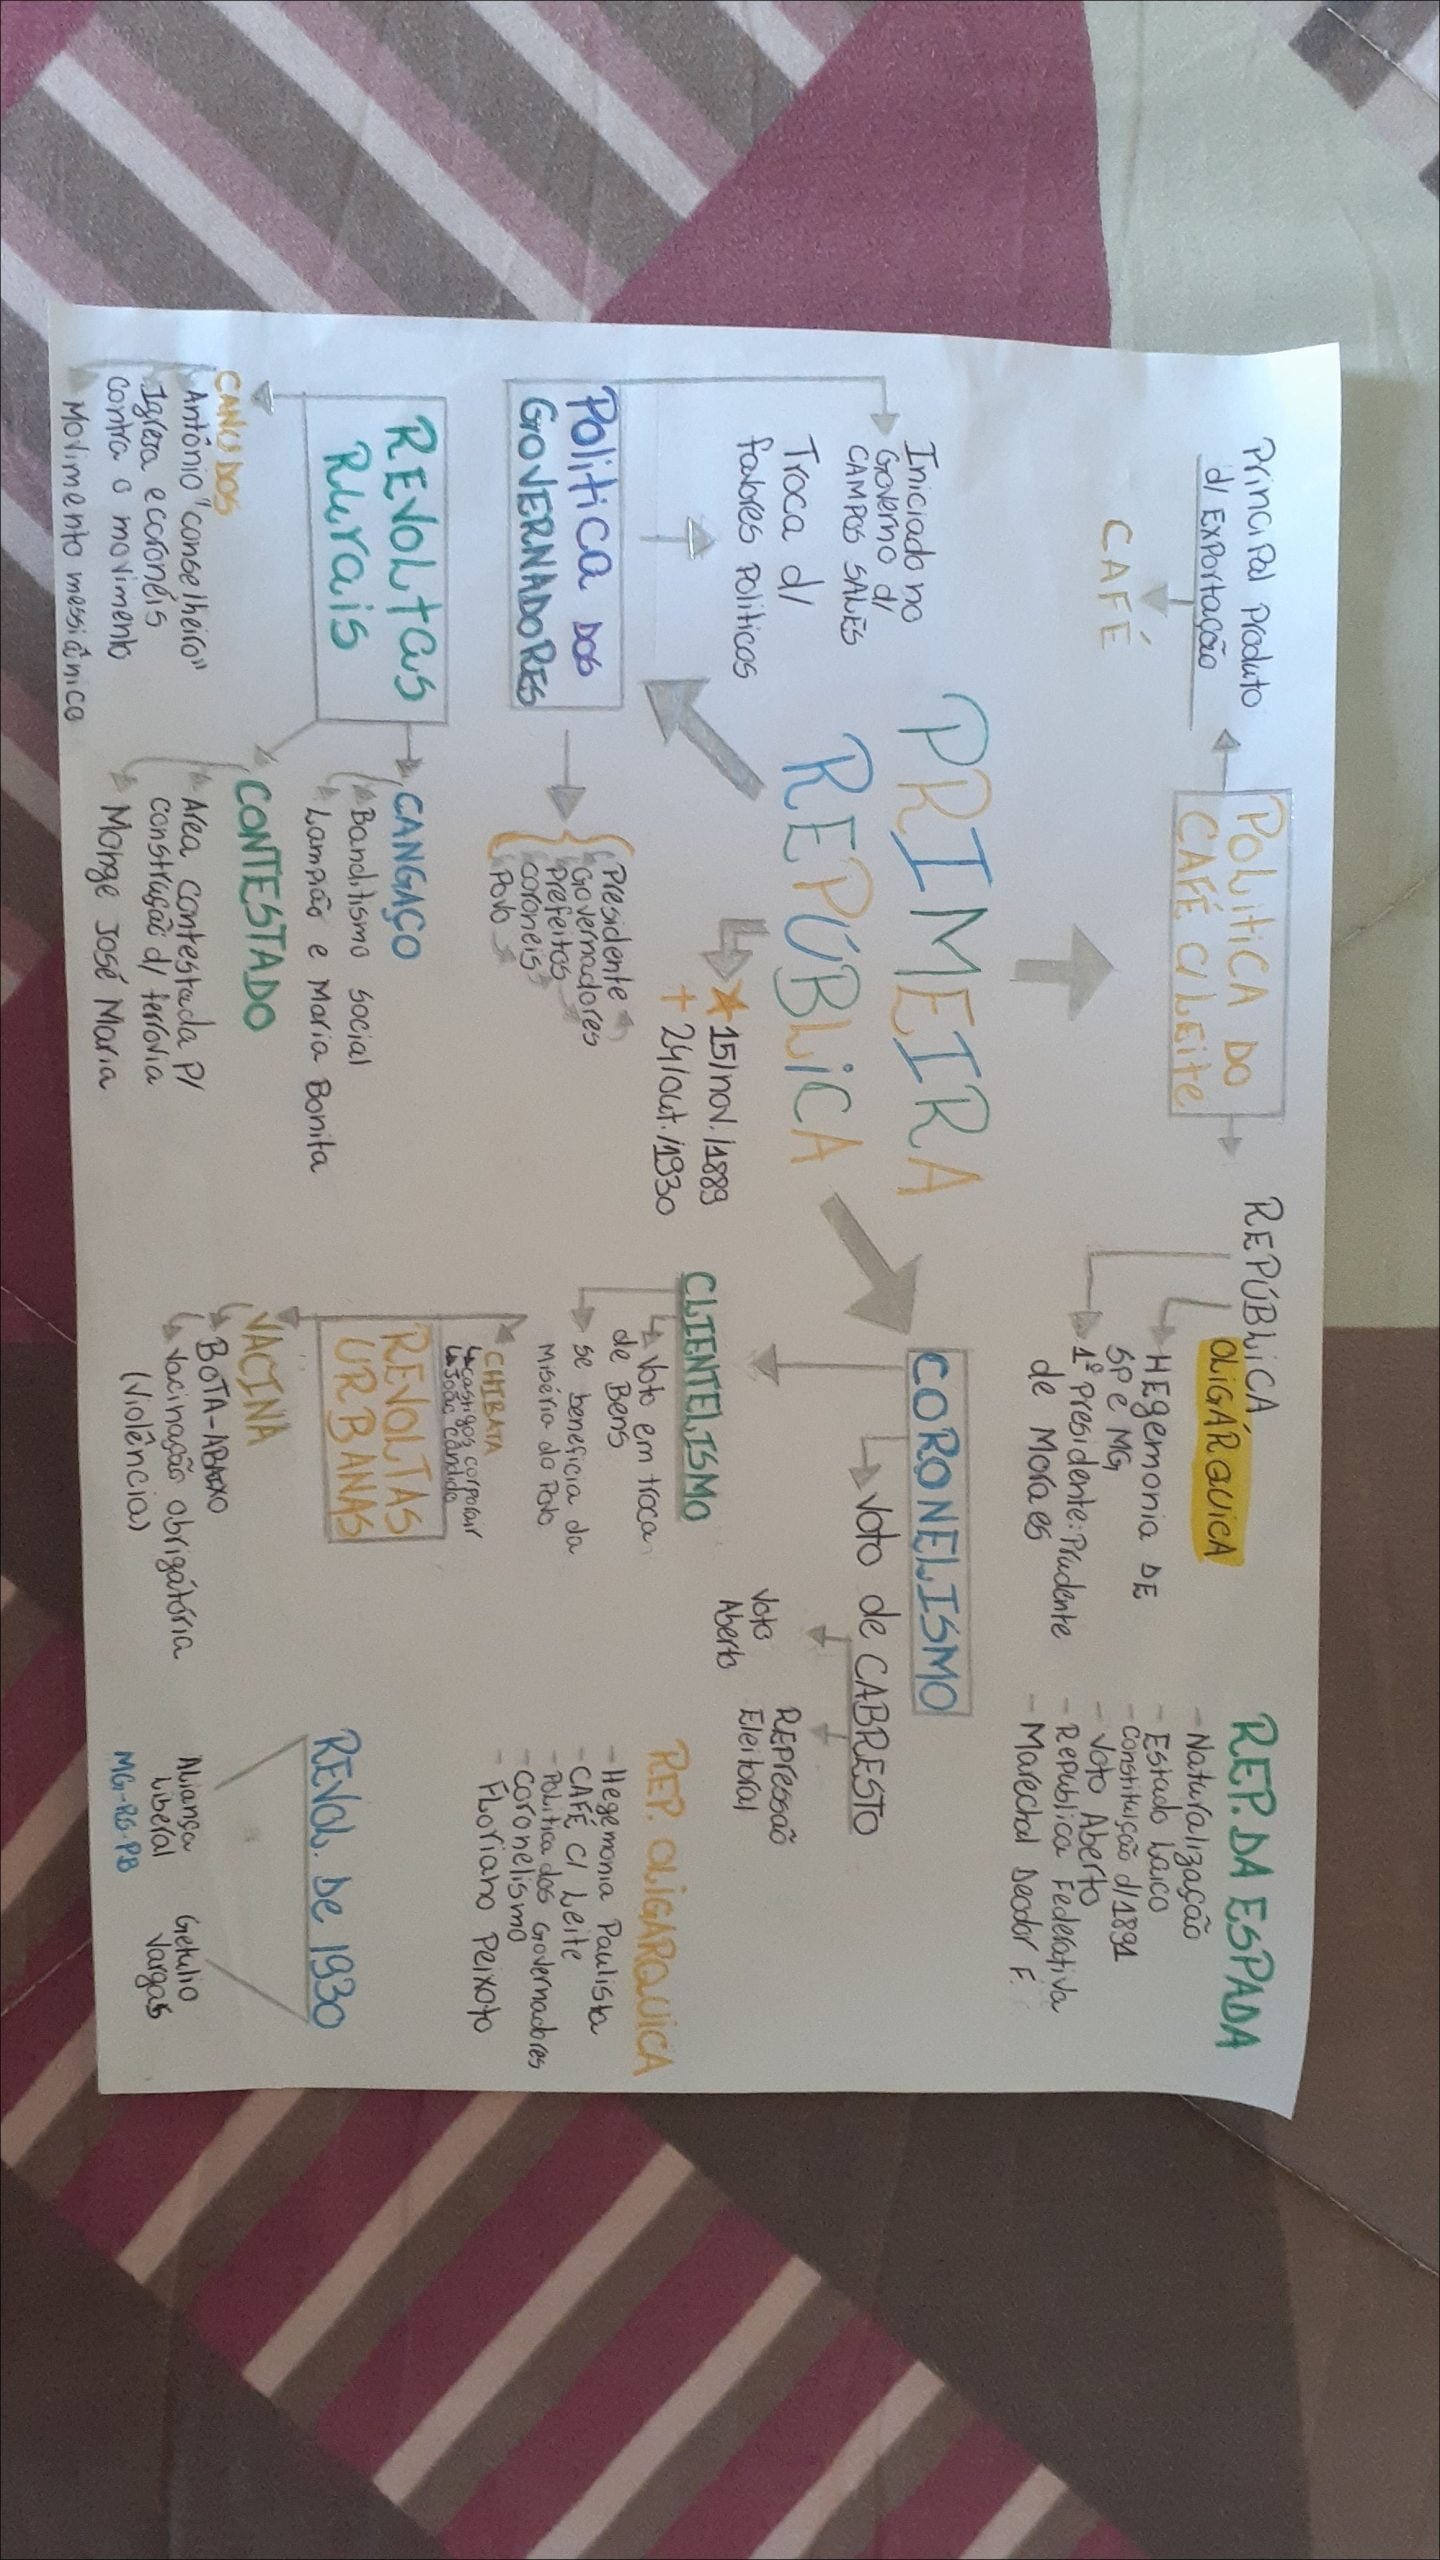 Principal Produto
d/ EXPORTAÇÃO
CAFÉ
POLITICA DO
CAFÉ C/ LEITE
REPÚBLICA
OLIGÁRQUICA
HEGEMONIA DE
SP e MG
1º Presidente: Prudente
de Moraes
REP. DA ESPADA
- Naturalização
- Estado Laico
- Constituição d/ 1891
- Voto Aberto
- Republica Federativa
- Marechal Deodor F.
PRIMEIRA
REPÚBLICA
15/nov./1889
+ 24/out./1930
Iniciado no
Governo d/
CAMPOS SALES
Troca d/
favores Politicos
Politica DOS
GOVERNADORES
Presidente
Governadores
Prefeitos
coroneis
Povo
CORONELISMO
Voto de CABRESTO
Voto
Aberto
REPRESSÃO
Eleitoral
CLIENTELISMO
Voto em troca
de Bens
se beneficia da
miséria do Povo
REP. OLIGARQUICA
- Hegemonia Paulista
- CAFÉ C/ Leite
- Politica dos Governadores
- Coronelismo
- Floriano Peixoto
REVOLTAS
Rurais
CANUDOS
Antônio "conselheiro"
Igreza e coronéis
contra o movimento
Movimento messiânico
CANGAÇO
Banditismo social
Lampião e Maria Bonita
CONTESTADO
Area contestada P/
construção d/ ferrovia
Monge José Maria
CHIBATA
castigos corporair
João cândido
REVOLTAS
URBANAS
VACINA
BOTA-ABAIXO
Vacinação obrigátória
(Violência)
REVOL. DE 1930
Aliança
Liberal
MG-RS-PB
Getulio
Vargas